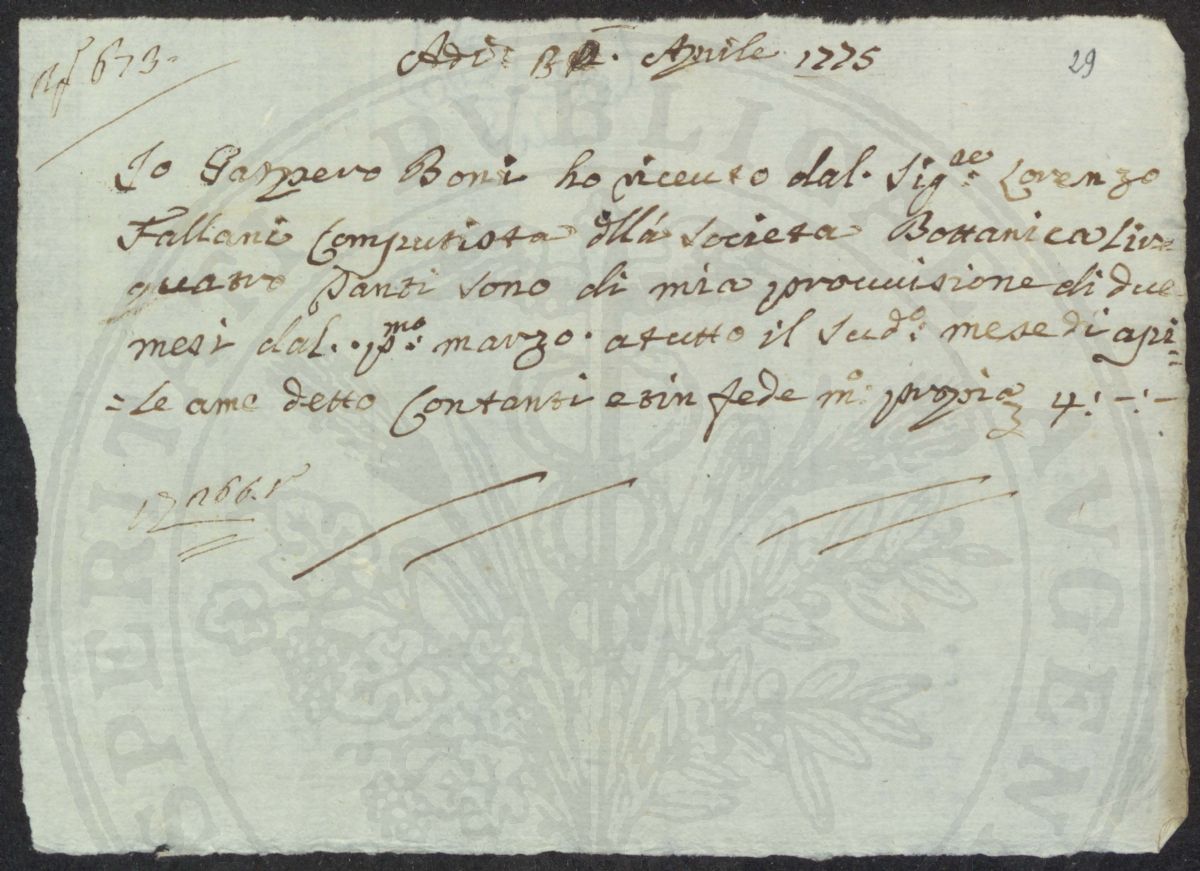 673.
Adi: Aprile 1775
29
Io Gaspero Boni ho riceuto dal. Sig:re Lorenzo
Fallani Computista dlla Societa Bottanica Lire
quatro Tanti sono di mia provuisione di due
mesi dal. p:mo marzo. a tutto il Sud:o mese di apri=
=le ame detto Contanti e in fede m:o propia 4:-:-
PUBLICAE
PROSPERITATI AUGEN